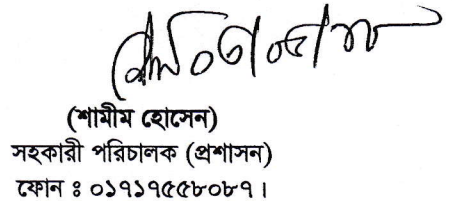 (শামীম হোসেন)
সহকারী পরিচালক (প্রশাসন)
ফোন ঃ ০১৭১৭৫৫৮০৮৭।